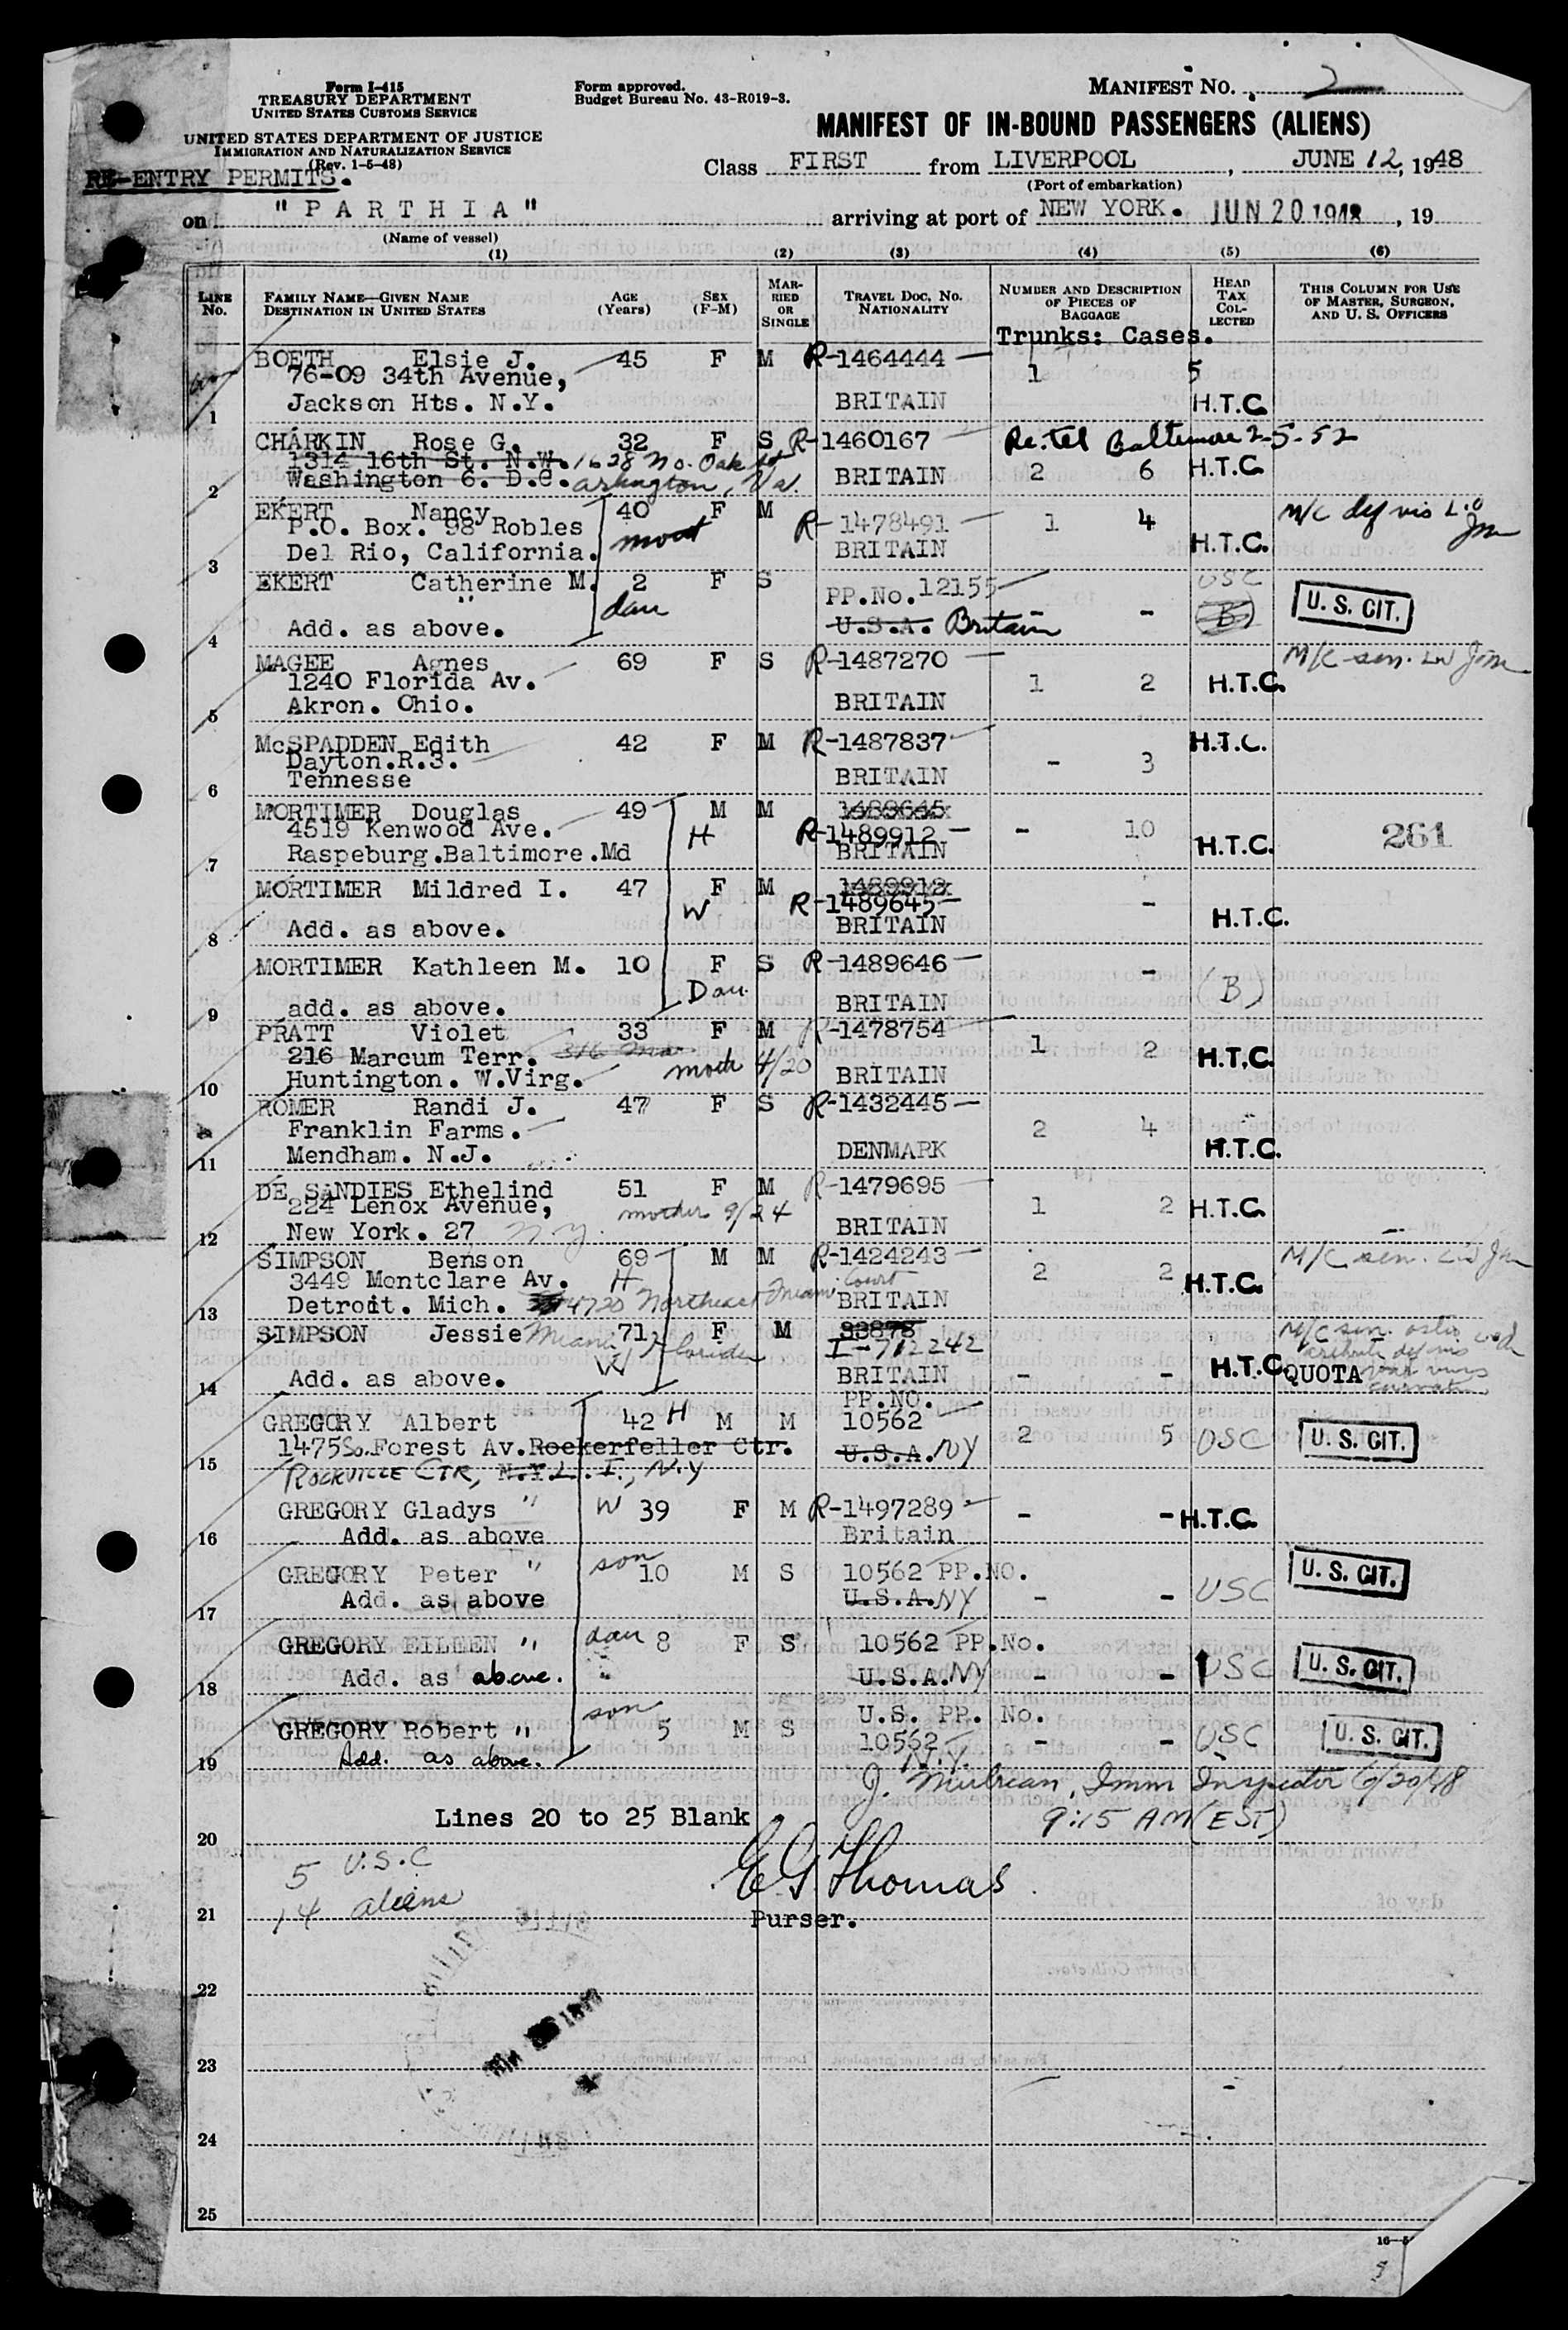 Form I-415
TREASURY DEPARTMENT
UNITED STATES CUSTOMS SERVICE
UNITED STATES DEPARTMENT OF JUSTICE
IMMIGRATION AND NATURALIZATION SERVICE
(Rev. 1-5-48)
RE-ENTRY PERMITS.
Form approved.
Budget Bureau No. 43-R019-3.
MANIFEST NO. 2
MANIFEST OF IN-BOUND PASSENGERS (ALIENS)
Class FIRST from LIVERPOOL, JUNE 12, 1948
(Port of embarkation)
on "PARTHIA" arriving at port of NEW YORK. JUN 20 1948, 19
(Name of vessel)
(1) (2) (3) (4) (5) (6)
LINE No. FAMILY NAME—GIVEN NAME DESTINATION IN UNITED STATES AGE (Years) SEX (F-M) MARRIED OR SINGLE TRAVEL DOC. NO. NATIONALITY NUMBER AND DESCRIPTION OF PIECES OF BAGGAGE HEAD TAX COLLECTED THIS COLUMN FOR USE OF MASTER, SURGEON, AND U. S. OFFICERS
Trunks: Cases.
BOETH Elsie J. 45 F M R-1464444
76-09 34th Avenue, 1 5
1 Jackson Hts. N.Y. BRITAIN H.T.C
CHARKIN Rose G. 32 F S R-1460167 Re.tel Baltimore 2-5-52
1314 16th St. N.W. 1628 No. Oak St
2 Washington 6. D.C. Arlington, Va. BRITAIN 2 6 H.T.C
EKERT Nancy 40 F M R-1478491 1 4 M/C def vis L.O
P.O. Box. 98 Robles
3 Del Rio, California. BRITAIN H.T.C.
EKERT Catherine M. 2 F S PP.No.12155 USC
" dau (B) U. S. CIT.
4 Add. as above. U.S.A. Britain - -
MAGEE Agnes 69 F S R-1487270 M/C sen.
1240 Florida Av. 1 2 H.T.C.
5 Akron. Ohio. BRITAIN
McSPADDEN Edith 42 F M R-1487837 H.T.C.
Dayton.R.3. - 3
6 Tennesse BRITAIN
MORTIMER Douglas 49 M M 1489645
4519 Kenwood Ave. H R-1489912 - 10 261
7 Raspeburg.Baltimore.Md BRITAIN H.T.C.
MORTIMER Mildred I. 47 F M 1489912
W R-1489645 -
8 Add. as above. BRITAIN H.T.C.
MORTIMER Kathleen M. 10 F S R-1489646 -
Dau. (B)
9 add. as above. BRITAIN
PRATT Violet 33 F M R-1478754
216 Marcum Terr. 1 2 H.T.C.
10 Huntington. W.Virg. 4/20 BRITAIN
ROMER Randi J. 47 F S R-1432445
Franklin Farms. 2 4
11 Mendham. N.J. DENMARK H.T.C.
DE SANDIES Ethelind 51 F M R-1479695
224 Lenox Avenue, mother 9/24 1 2 H.T.C.
12 New York. 27 N.Y. BRITAIN
SIMPSON Benson 69 M M R-1424243 M/C sen.
3449 Montclare Av. H Court 2 2 H.T.C.
13 Detroit. Mich. 4720 Northeast Miami BRITAIN
SIMPSON Jessie Miami, Florida 71 F M 93878 M/C sen.
W I-712242
14 Add. as above. BRITAIN - - H.T.C. QUOTA
PP.NO.
GREGORY Albert 42 H M M 10562
15 1475 So. Forest Av. Rockerfeller Ctr. U.S.A. NY 2 5 USC U. S. CIT.
ROCKVILLE CTR, N.Y. L. I., N.Y
GREGORY Gladys " W 39 F M R-1497289 - - H.T.C.
16 Add. as above Britain
GREGORY Peter " son 10 M S 10562 PP.NO. U. S. CIT.
17 Add. as above U.S.A. NY - - USC
GREGORY EILEEN " dau 8 F S 10562 PP.No.
18 Add. as above. U.S.A. NY - - USC U. S. CIT.
U.S. PP. No.
GREGORY Robert " son 5 M S 10562 - - USC U. S. CIT.
19 Add. as above. N.Y.
Imm Inspector 6/20/48
Lines 20 to 25 Blank. 9:15 AM (EST)
20
5 U.S.C
E G Thomas
14 aliens
21 Purser.
22
23
24
25